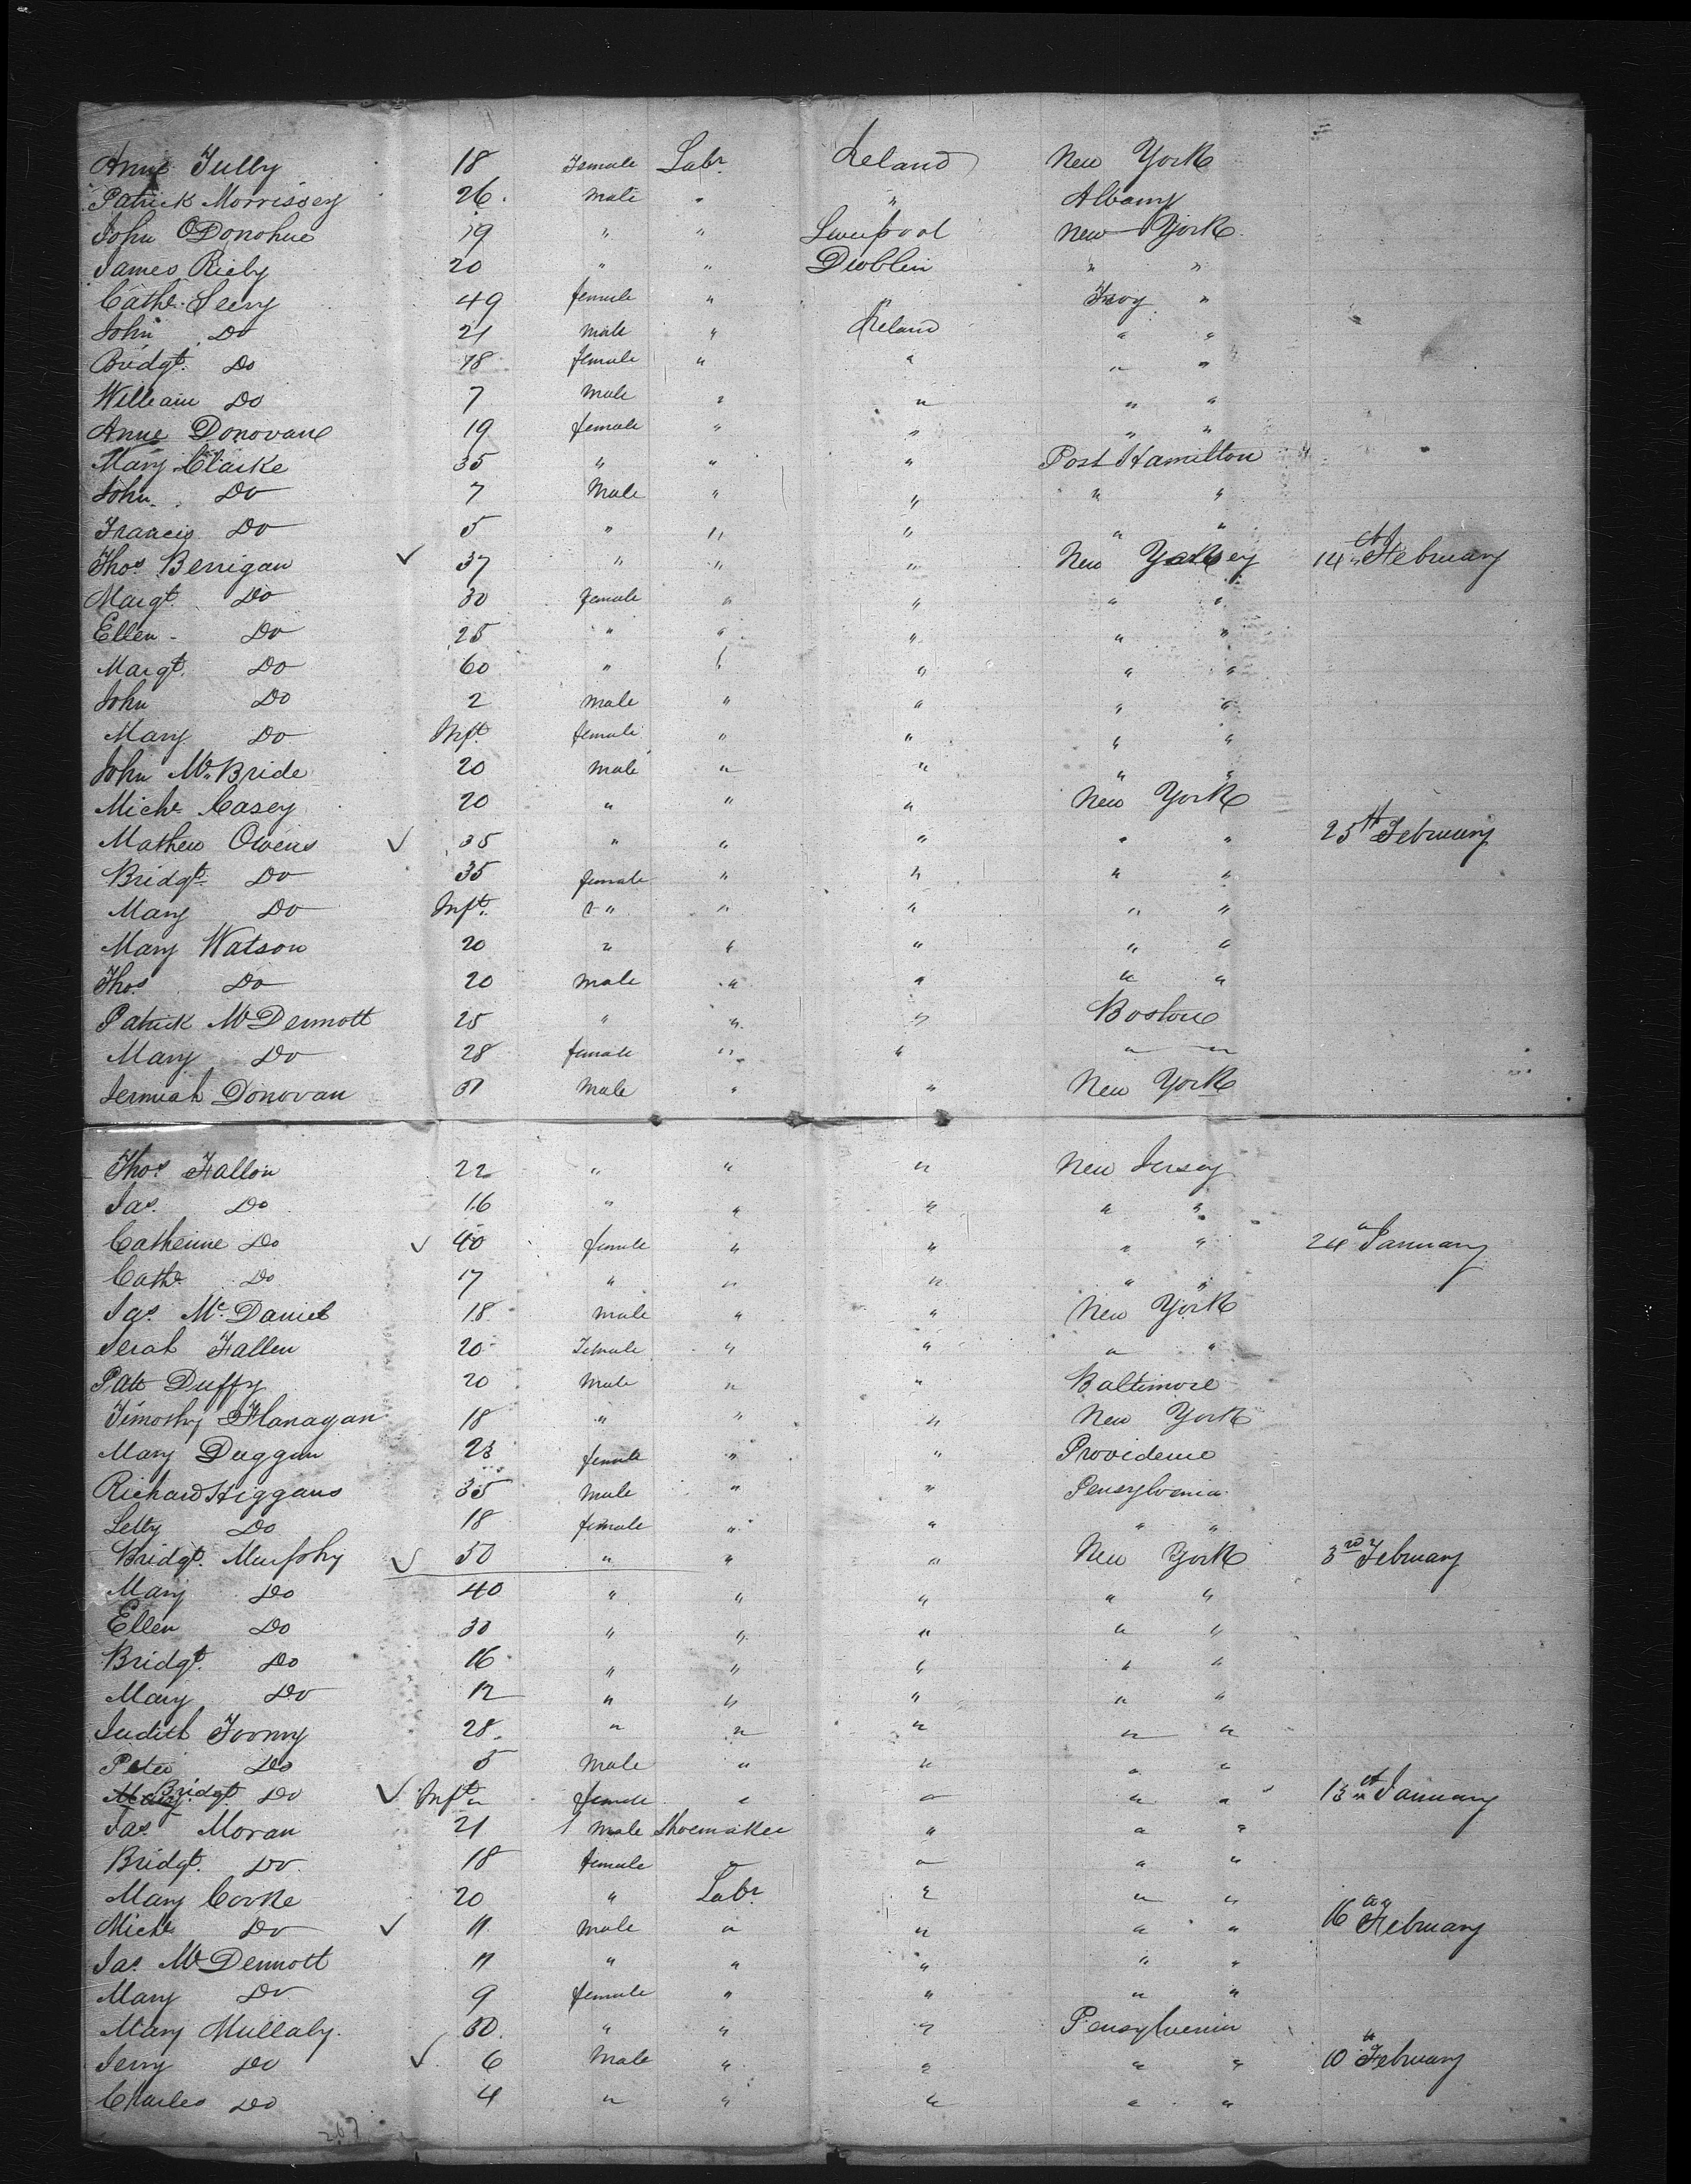 Anne Tully 18 Female Labr. Ireland New York
Patrick Morrissey 26. Male " " Albany
John O'Donohue 19 " " Liverpool New York
James Riely 20 " " Dublin " "
Cathe. Leery 49 female " " Troy "
John Do 21 Male " Ireland " "
Bridgt. Do 18 female " " " "
William Do 7 Male " " " "
Anne Donovan 19 female " " " "
Mary Clarke 35 " " " Port Hamilton
John Do 7 Male " " " "
Francis Do 5 " " " " "
Thos Berrigan ✓ 37 " " " New 14th February
Margt. Do 30 female " " " "
Ellen Do 25 " " " " "
Margt. Do 60 " " " " "
John Do 2 male " " " "
Mary Do Inft. female " " " "
John McBride 20 Male " " " "
Michl Casey 20 " " " New York
Mathew Owens ✓ 35 " " " " " 25th February
Bridgt. Do 35 female " " " "
Mary Do Inft. " " " " "
Mary Watson 20 " " " " "
Thos Do 20 Male " " " "
Patrick McDermott 25 " " " Boston
Mary Do 28 female " " " "
Jermiah Donovan Male " " New York
Thos Fallon 22 " " " New Jersey
Jas. Do 16 " " " " "
Catherine Do ✓ 40 female " " " " 24 January
Cathe Do 17 " " " " "
Jas. McDaniel 18 male " " New York
Serah Fallen 20 Female " " " "
Patt Duffy 20 Male " " Baltimore
Timothy Flanagan 18 " " " New York
Mary Duggan 23 female " " Providence
Richard Higgans 35 Male " " Pensylvenia
Letty Do 18 female " " " "
Bridgt. Murphy ✓ 50 " " " New York 3rd February
Mary Do 40 " " " " "
Ellen Do 30 " " " " "
Bridgt. Do 16 " " " " "
Mary Do 12 " " " " "
Judith Toomy 28. " " " " "
Peter Do 5 Male " " " "
Mary Bridgt Do ✓ Inft. female " " " " 13th January
Jas. Moran 21 Male Shoemaker " " "
Bridgt. Do 18 female " " " "
Mary Cooke 20 " Labr. " " "
Michl Do ✓ 11 male " " " " 16th February
Jas. McDermott 11 " " " " "
Mary Do 9 female " " " "
Mary Mullaly. 30. " " " Pensylvenia
Jerry Do ✓ 6 Male " " " " 10th February
Charles Do 4 " " " " "